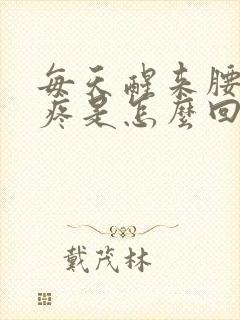 每天醒来腰
疼是怎麼回
戴茂林